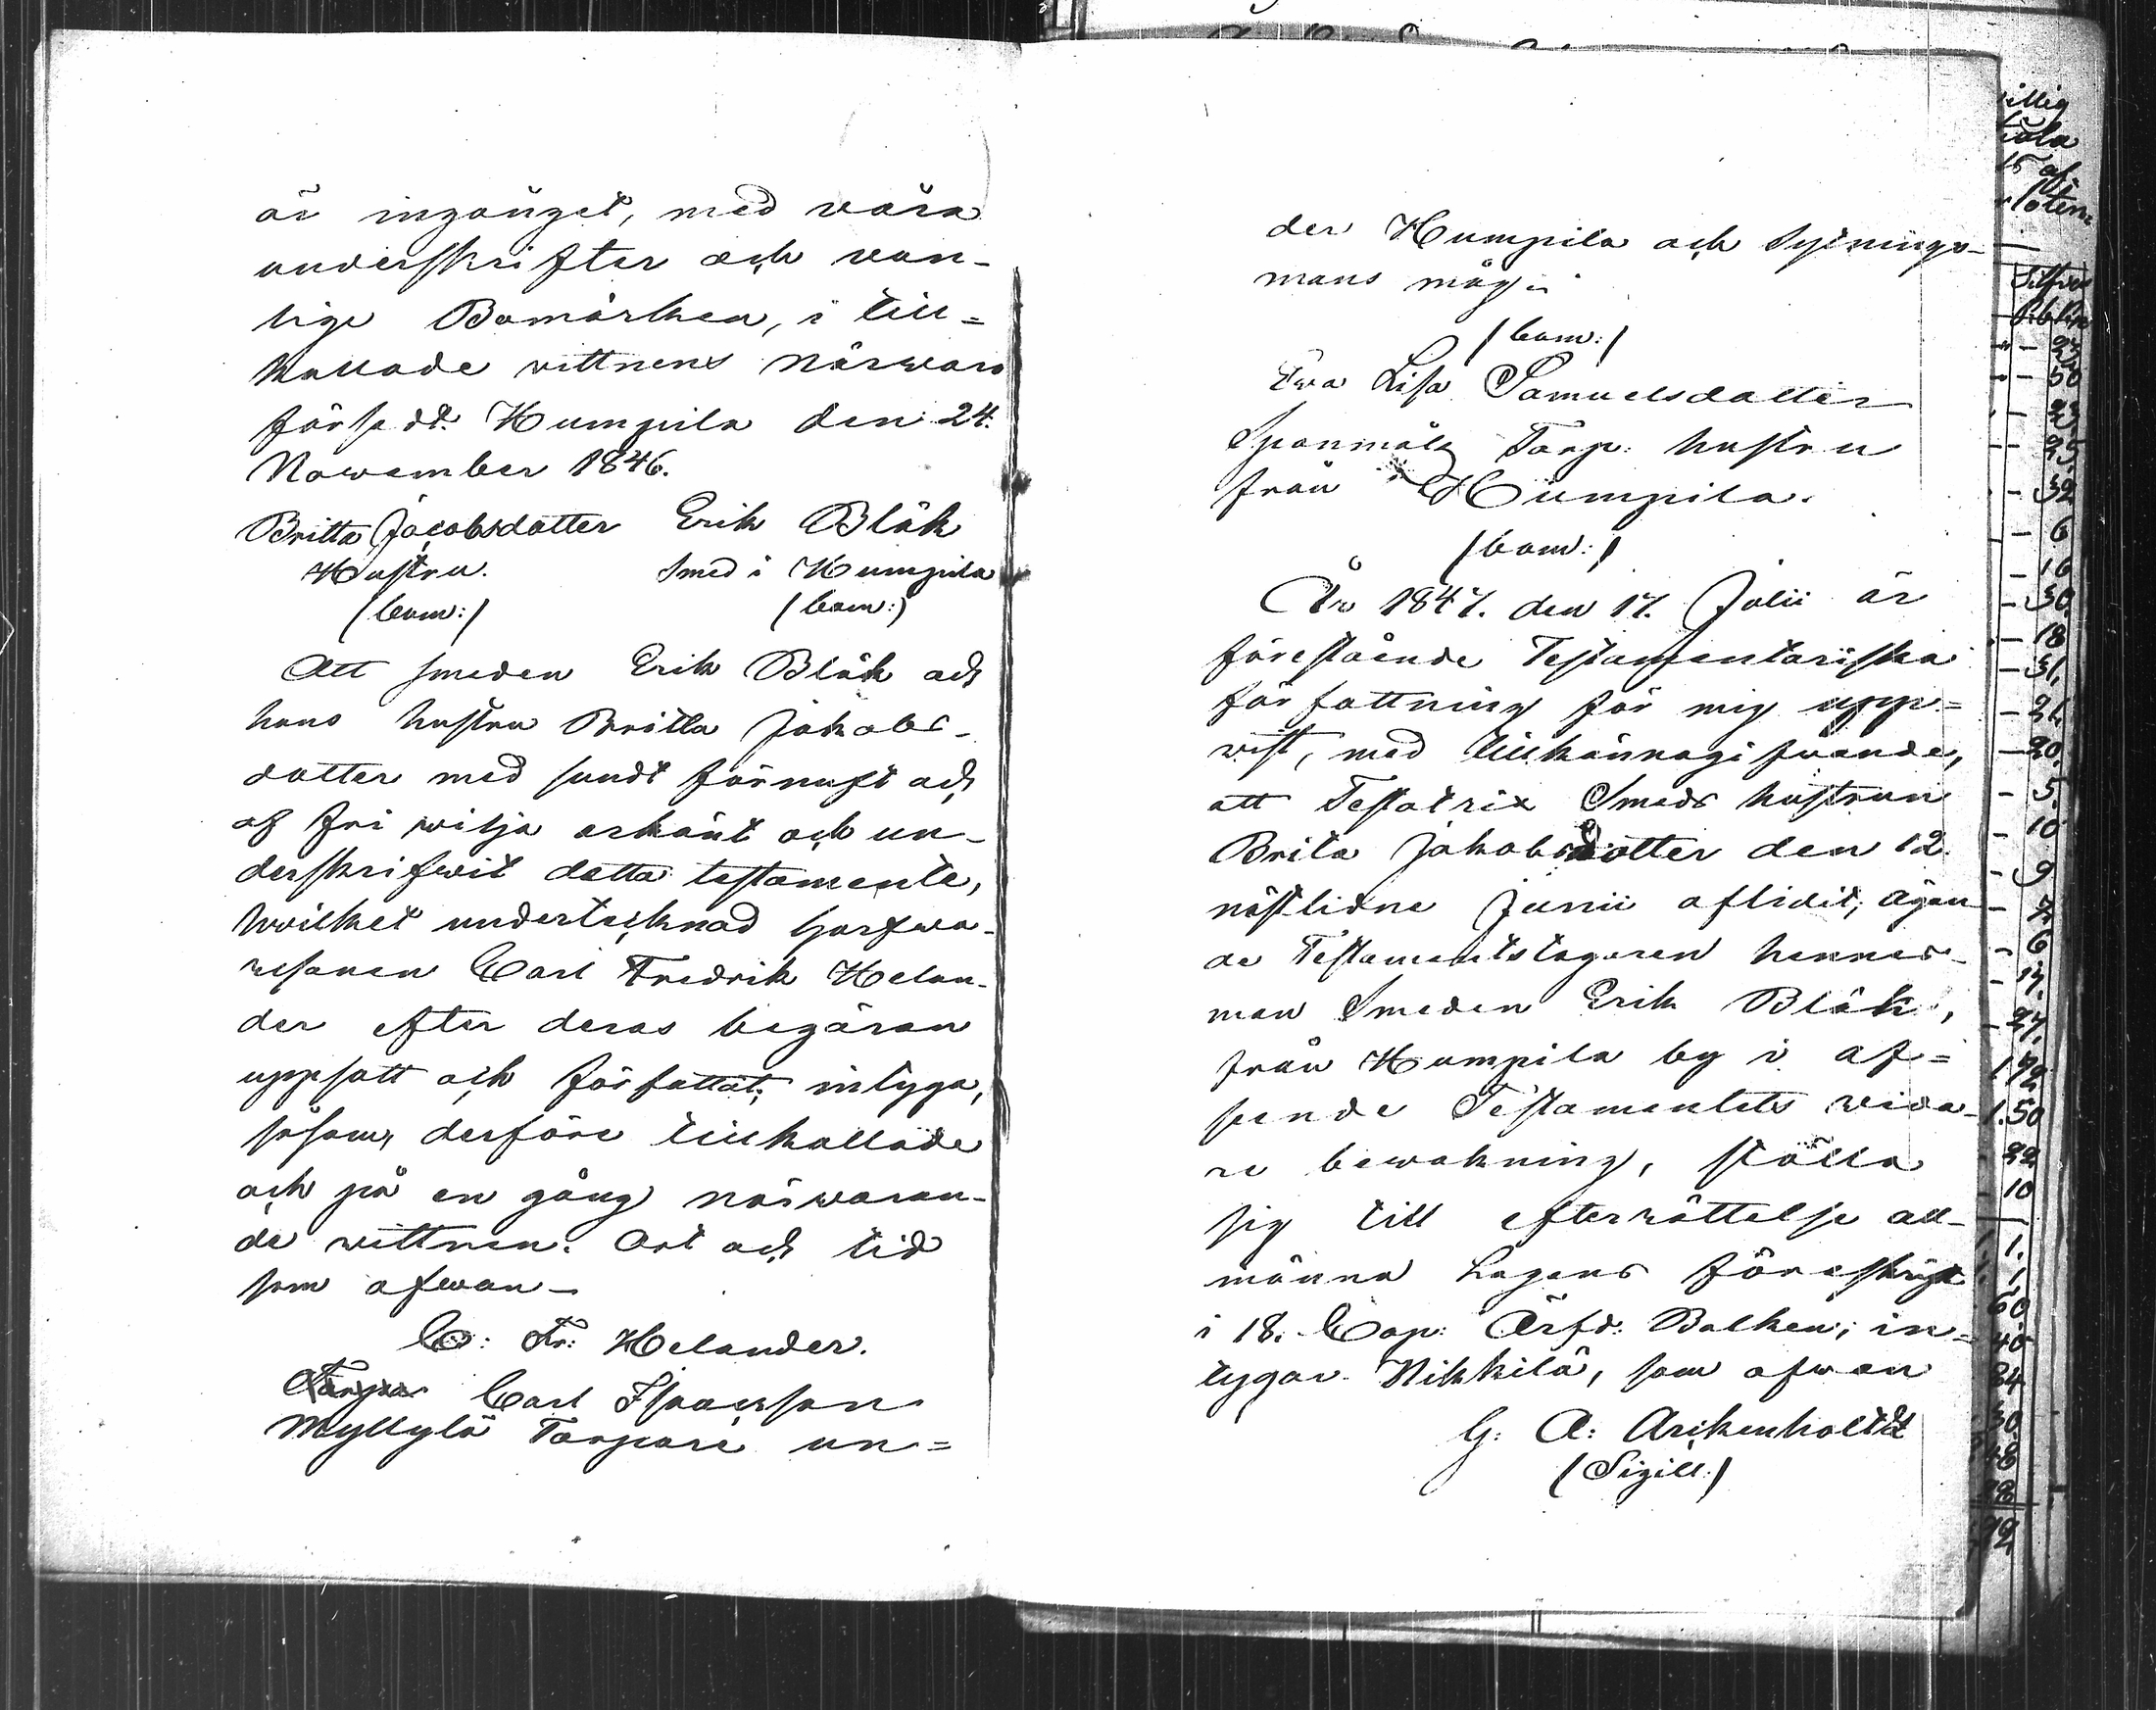 är ingånget, med våra
underskrifter och van-
lige Bomärken, i till=
kallade vittnens närvaro
försedt. Humpila den 24.
November 1846.
Britta Jacobsdotter Erik Bläk
Hustru. Smed i Humpila
(bom:) (bom:)
Att smeden Erik Bläk och
hans hustru Britta Jakobs-
dotter med sundt förnuft och
af fri wilja erkänt och un-
derskrifwit detta testamente,
hwilket undertecknad
Carl Fredrik Helan-
der efter deras begäran
uppsatt och författat; intyga,
såsom, derföre tillkallade
och på en gång närvaran-
de wittnen. Ort och tid
som ofwan-
C: Fr: Helander.
Carl Isaacsson
Myllylä Torpare un=
der Humpila och Sytnings-
mans måg
(bom:)
Ewa Lisa Samuelsdotter
Torp: hustru
från Humpila.
(bom:)
År 1847. den 17. Julii är
förestående Testamentariska
författning för mig upp=
wist, med tillkännagifwande,
att Testatrix Smeds hustrun
Brita Jakobsdotter den 12
nästlidne Junii aflidit; ägan-
de Testamentstagaren hennes
man Smeden Erik Bläk,
från Humpila by i af=
seende Testamentets wida-
re bewakning, ställa
sig till efterrättelse all-
männa Lagens föreskrift
i 18. Cap: Ärfd: Balken; in=
tygar. Nikkilä, som ofwan
G: A: Arckenholtz
(Sigill:)